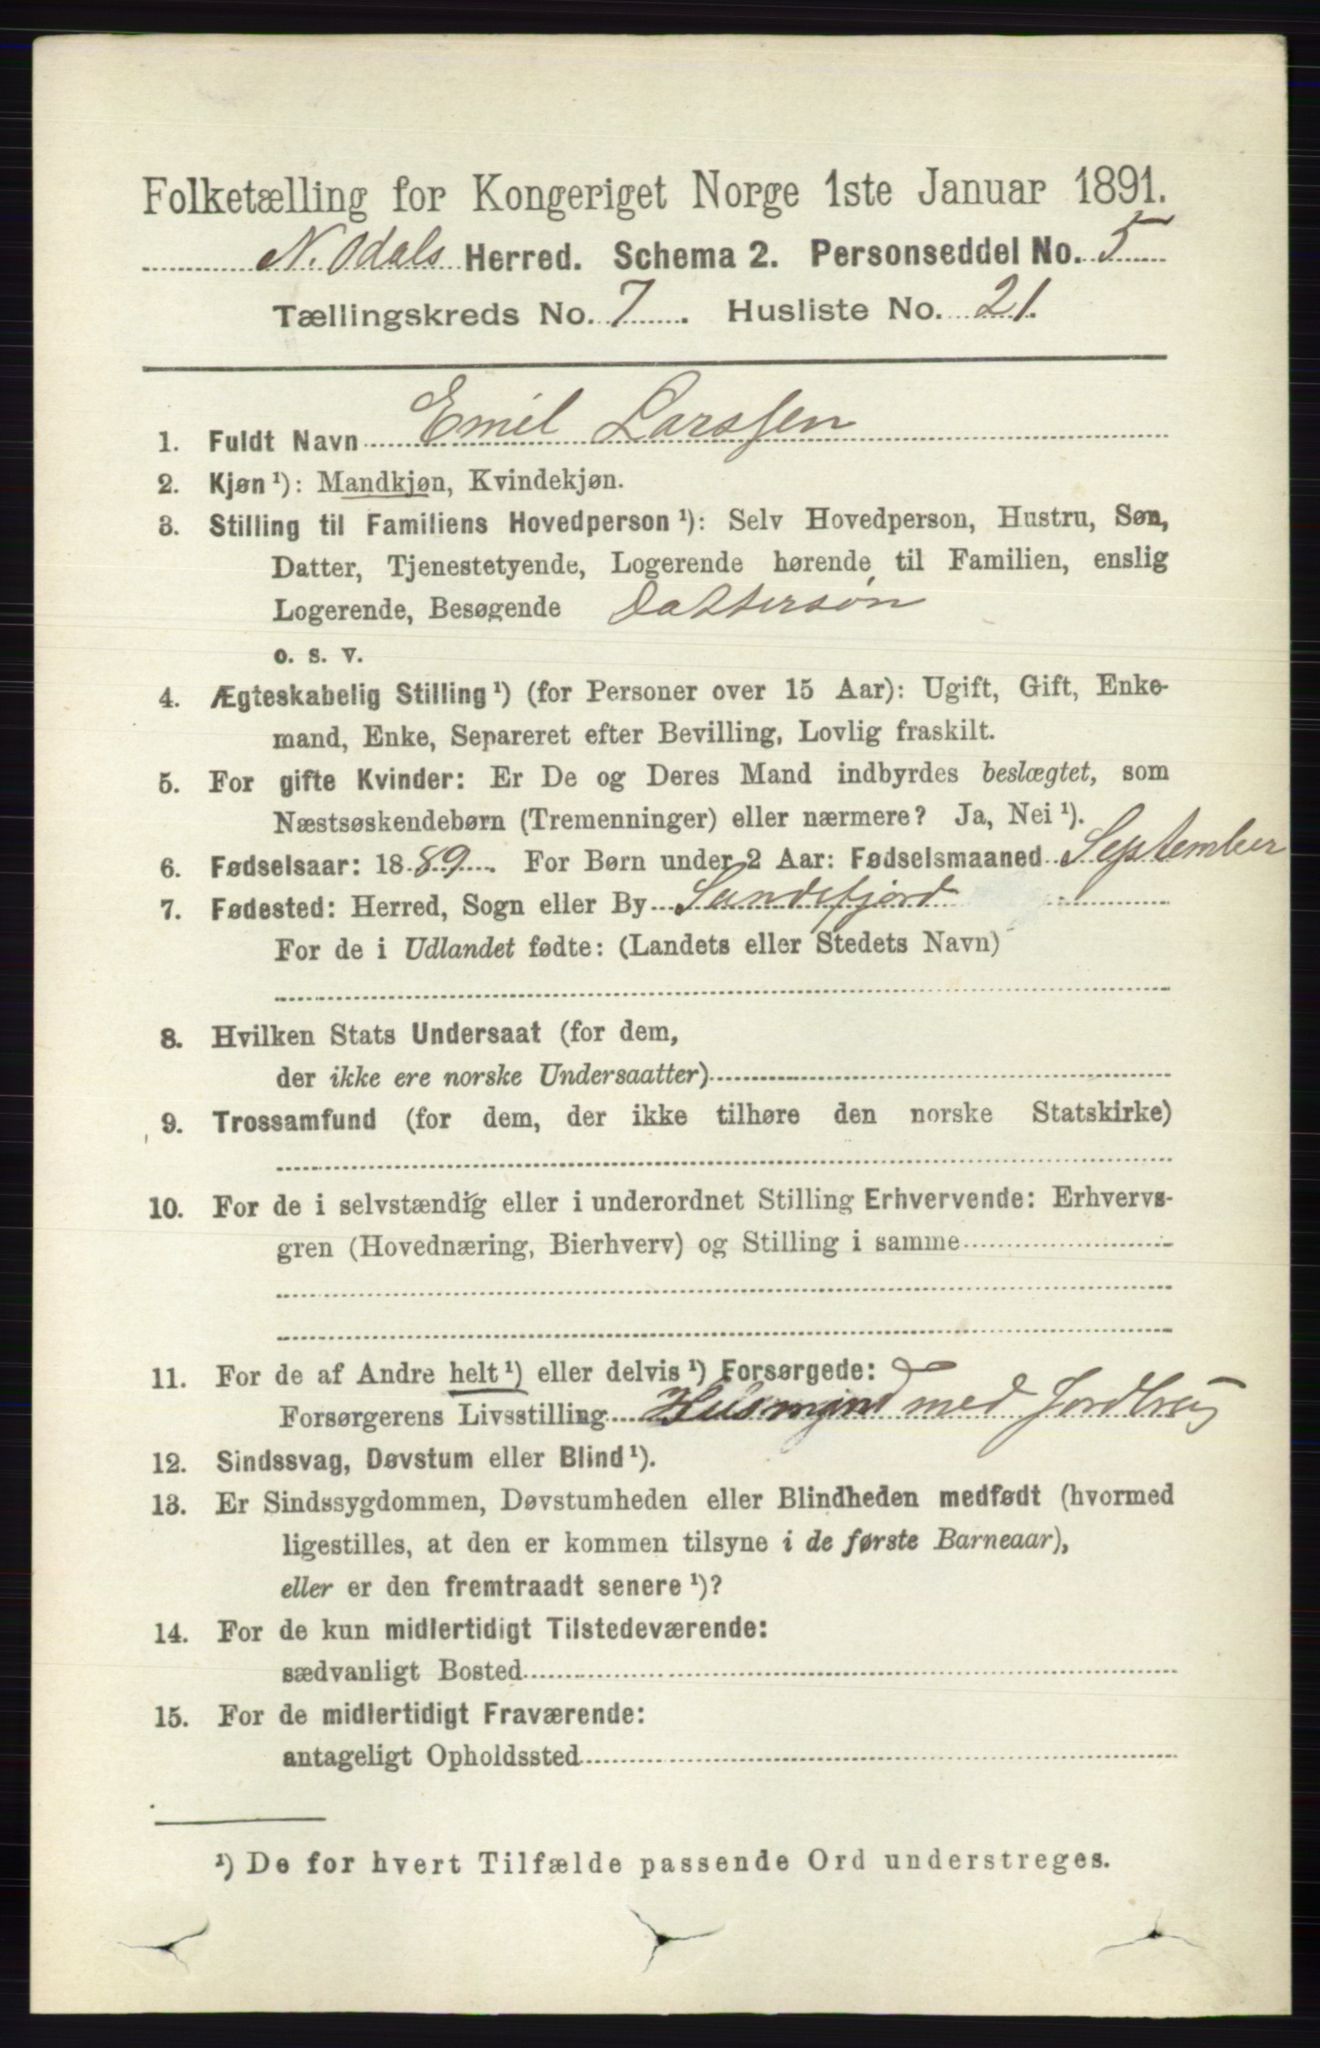 Folketælling for Kongeriget Norge 1ste Januar 1891.
N. Odals Herred. Schema 2. Personseddel No. 5
Tællingskreds No. 7. Husliste No. 21.
1. Fuldt Navn Emil Larssen
2. Kjøn ¹): Mandkjøn, Kvindekjøn.
3. Stilling til Familiens Hovedperson ¹): Selv Hovedperson, Hustru, Søn,
Datter, Tjenestetyende, Logerende hørende til Familien, enslig
Logerende, Besøgende Dattersøn
o. s. v.
4. Ægteskabelig Stilling ¹) (for Personer over 15 Aar): Ugift, Gift, Enke-
mand, Enke, Separeret efter Bevilling, Lovlig fraskilt.
5. For gifte Kvinder: Er De og Deres Mand indbyrdes beslægtet, som
Næstsøskendebørn (Tremenninger) eller nærmere? Ja, Nei ¹).
6. Fødselsaar: 1889. For Børn under 2 Aar: Fødselsmaaned September
7. Fødested: Herred, Sogn eller By Sandefjord
For de i Udlandet fødte: (Landets eller Stedets Navn)
8. Hvilken Stats Undersaat (for dem,
der ikke ere norske Undersaatter)
9. Trossamfund (for dem, der ikke tilhøre den norske Statskirke)
10. For de i selvstændig eller i underordnet Stilling Erhvervende: Erhvervs-
gren (Hovednæring, Bierhverv) og Stilling i samme
11. For de af Andre helt ¹) eller delvis ¹) Forsørgede:
Forsørgerens Livsstilling Husmand med Jordbrug
12. Sindssvag, Døvstum eller Blind ¹).
13. Er Sindssygdommen, Døvstumheden eller Blindheden medfødt (hvormed
ligestilles, at den er kommen tilsyne i de første Barneaar),
eller er den fremtraadt senere ¹)?
14. For de kun midlertidigt Tilstedeværende:
sædvanligt Bosted
15. For de midlertidigt Fraværende:
antageligt Opholdssted
¹) De for hvert Tilfælde passende Ord understreges.